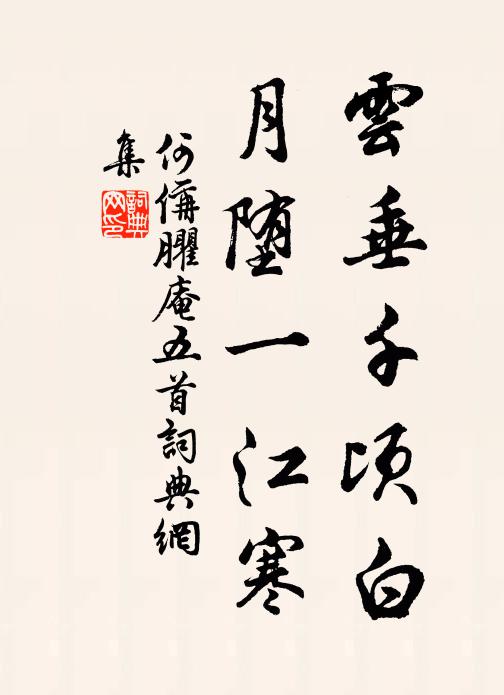 雲垂千頃白
月堕一江寒
何偁臞庵五首詞典網
集
詞典網印